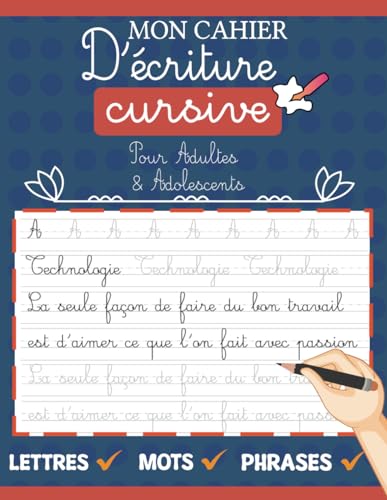 MON CAHIER
D'écriture
cursive
Pour Adultes
& Adolescents
A A A A A A A A A
Technologie Technologie Technologie
La seule façon de faire du bon travail
est d'aimer ce que l'on fait avec passion
La seule façon de faire du bon
est d'aimer ce que l'on fait avec
LETTRES MOTS PHRASES